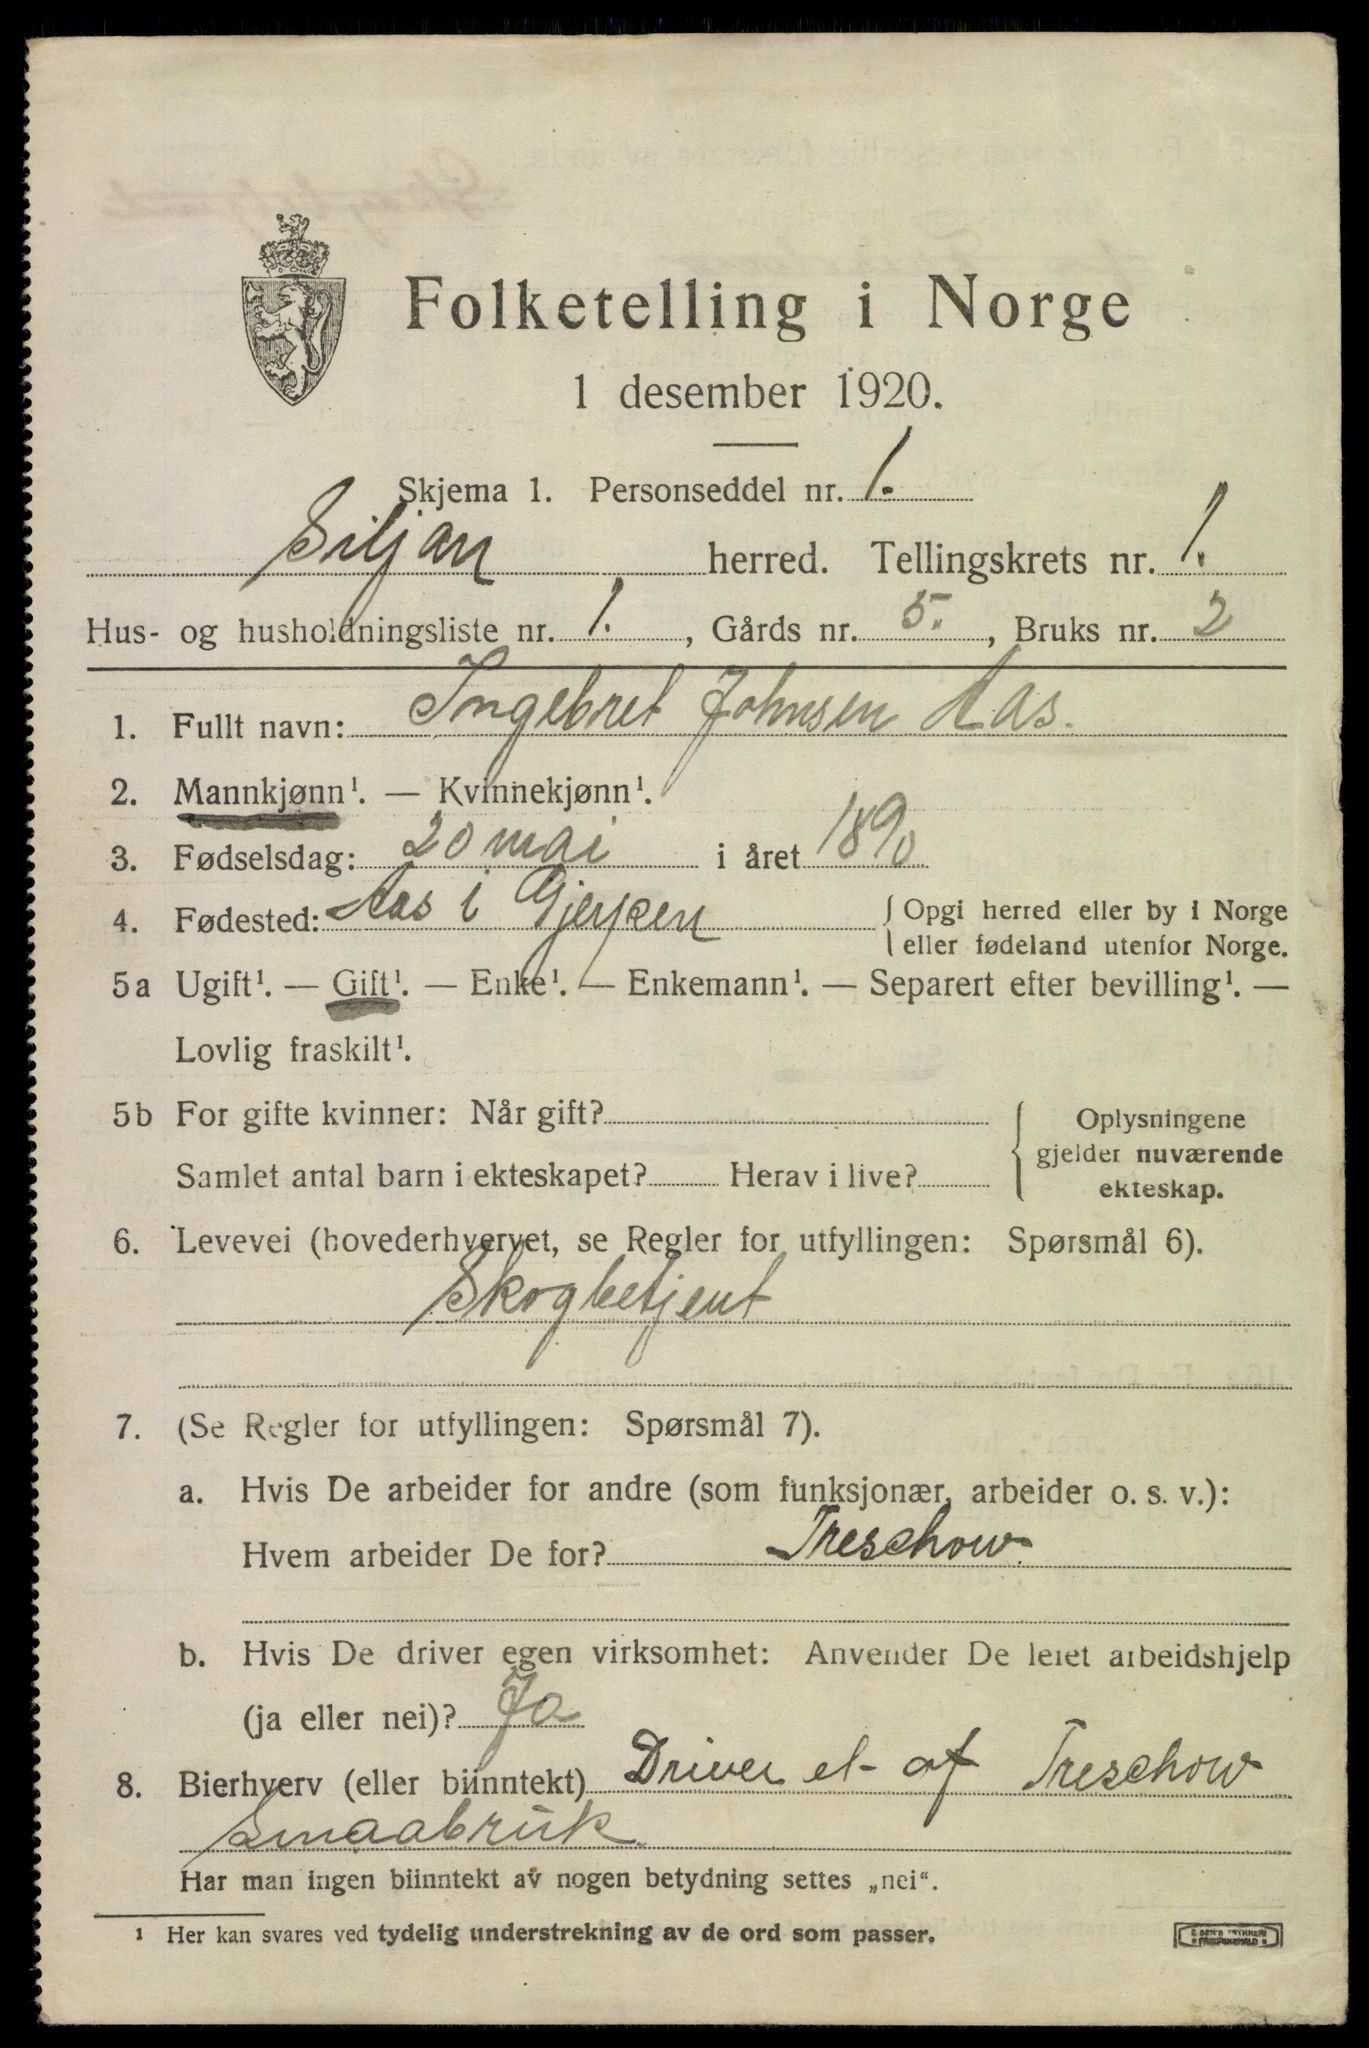 Folketelling i Norge
1 desember 1920.
Skjema 1. Personseddel nr. 1.
Siljan herred. Tellingskrets nr. 1.
Hus- og husholdningsliste nr. 1., Gårds nr. 5., Bruks nr. 2
1. Fullt navn: Ingebret Johnsen Aas.
2. Mannkjønn¹. — Kvinnekjønn¹.
3. Fødselsdag: 20 mai i året 1890
4. Fødested: Aas i Gjerpen { Opgi herred eller by i Norge
eller fødeland utenfor Norge.
5a Ugift¹. — Gift¹. — Enke¹. — Enkemann¹. — Separert efter bevilling¹. —
Lovlig fraskilt¹.
5b For gifte kvinner: Når gift? { Oplysningene
gjelder nuværende
Samlet antal barn i ekteskapet? Herav i live?
ekteskap.
6. Levevei (hovederhvervet, se Regler for utfyllingen: Spørsmål 6).
Skogbetjent
7. (Se Regler for utfyllingen: Spørsmål 7).
a. Hvis De arbeider for andre (som funksjonær, arbeider o. s. v.):
Hvem arbeider De for? Treschow.
b. Hvis De driver egen virksomhet: Anvender De leiet arbeidshjelp
(ja eller nei)? Ja
8. Bierhverv (eller biinntekt) Driver et af Treschow
Smaabruk.
Har man ingen biinntekt av nogen betydning settes „nei“.
¹ Her kan svares ved tydelig understrekning av de ord som passer.